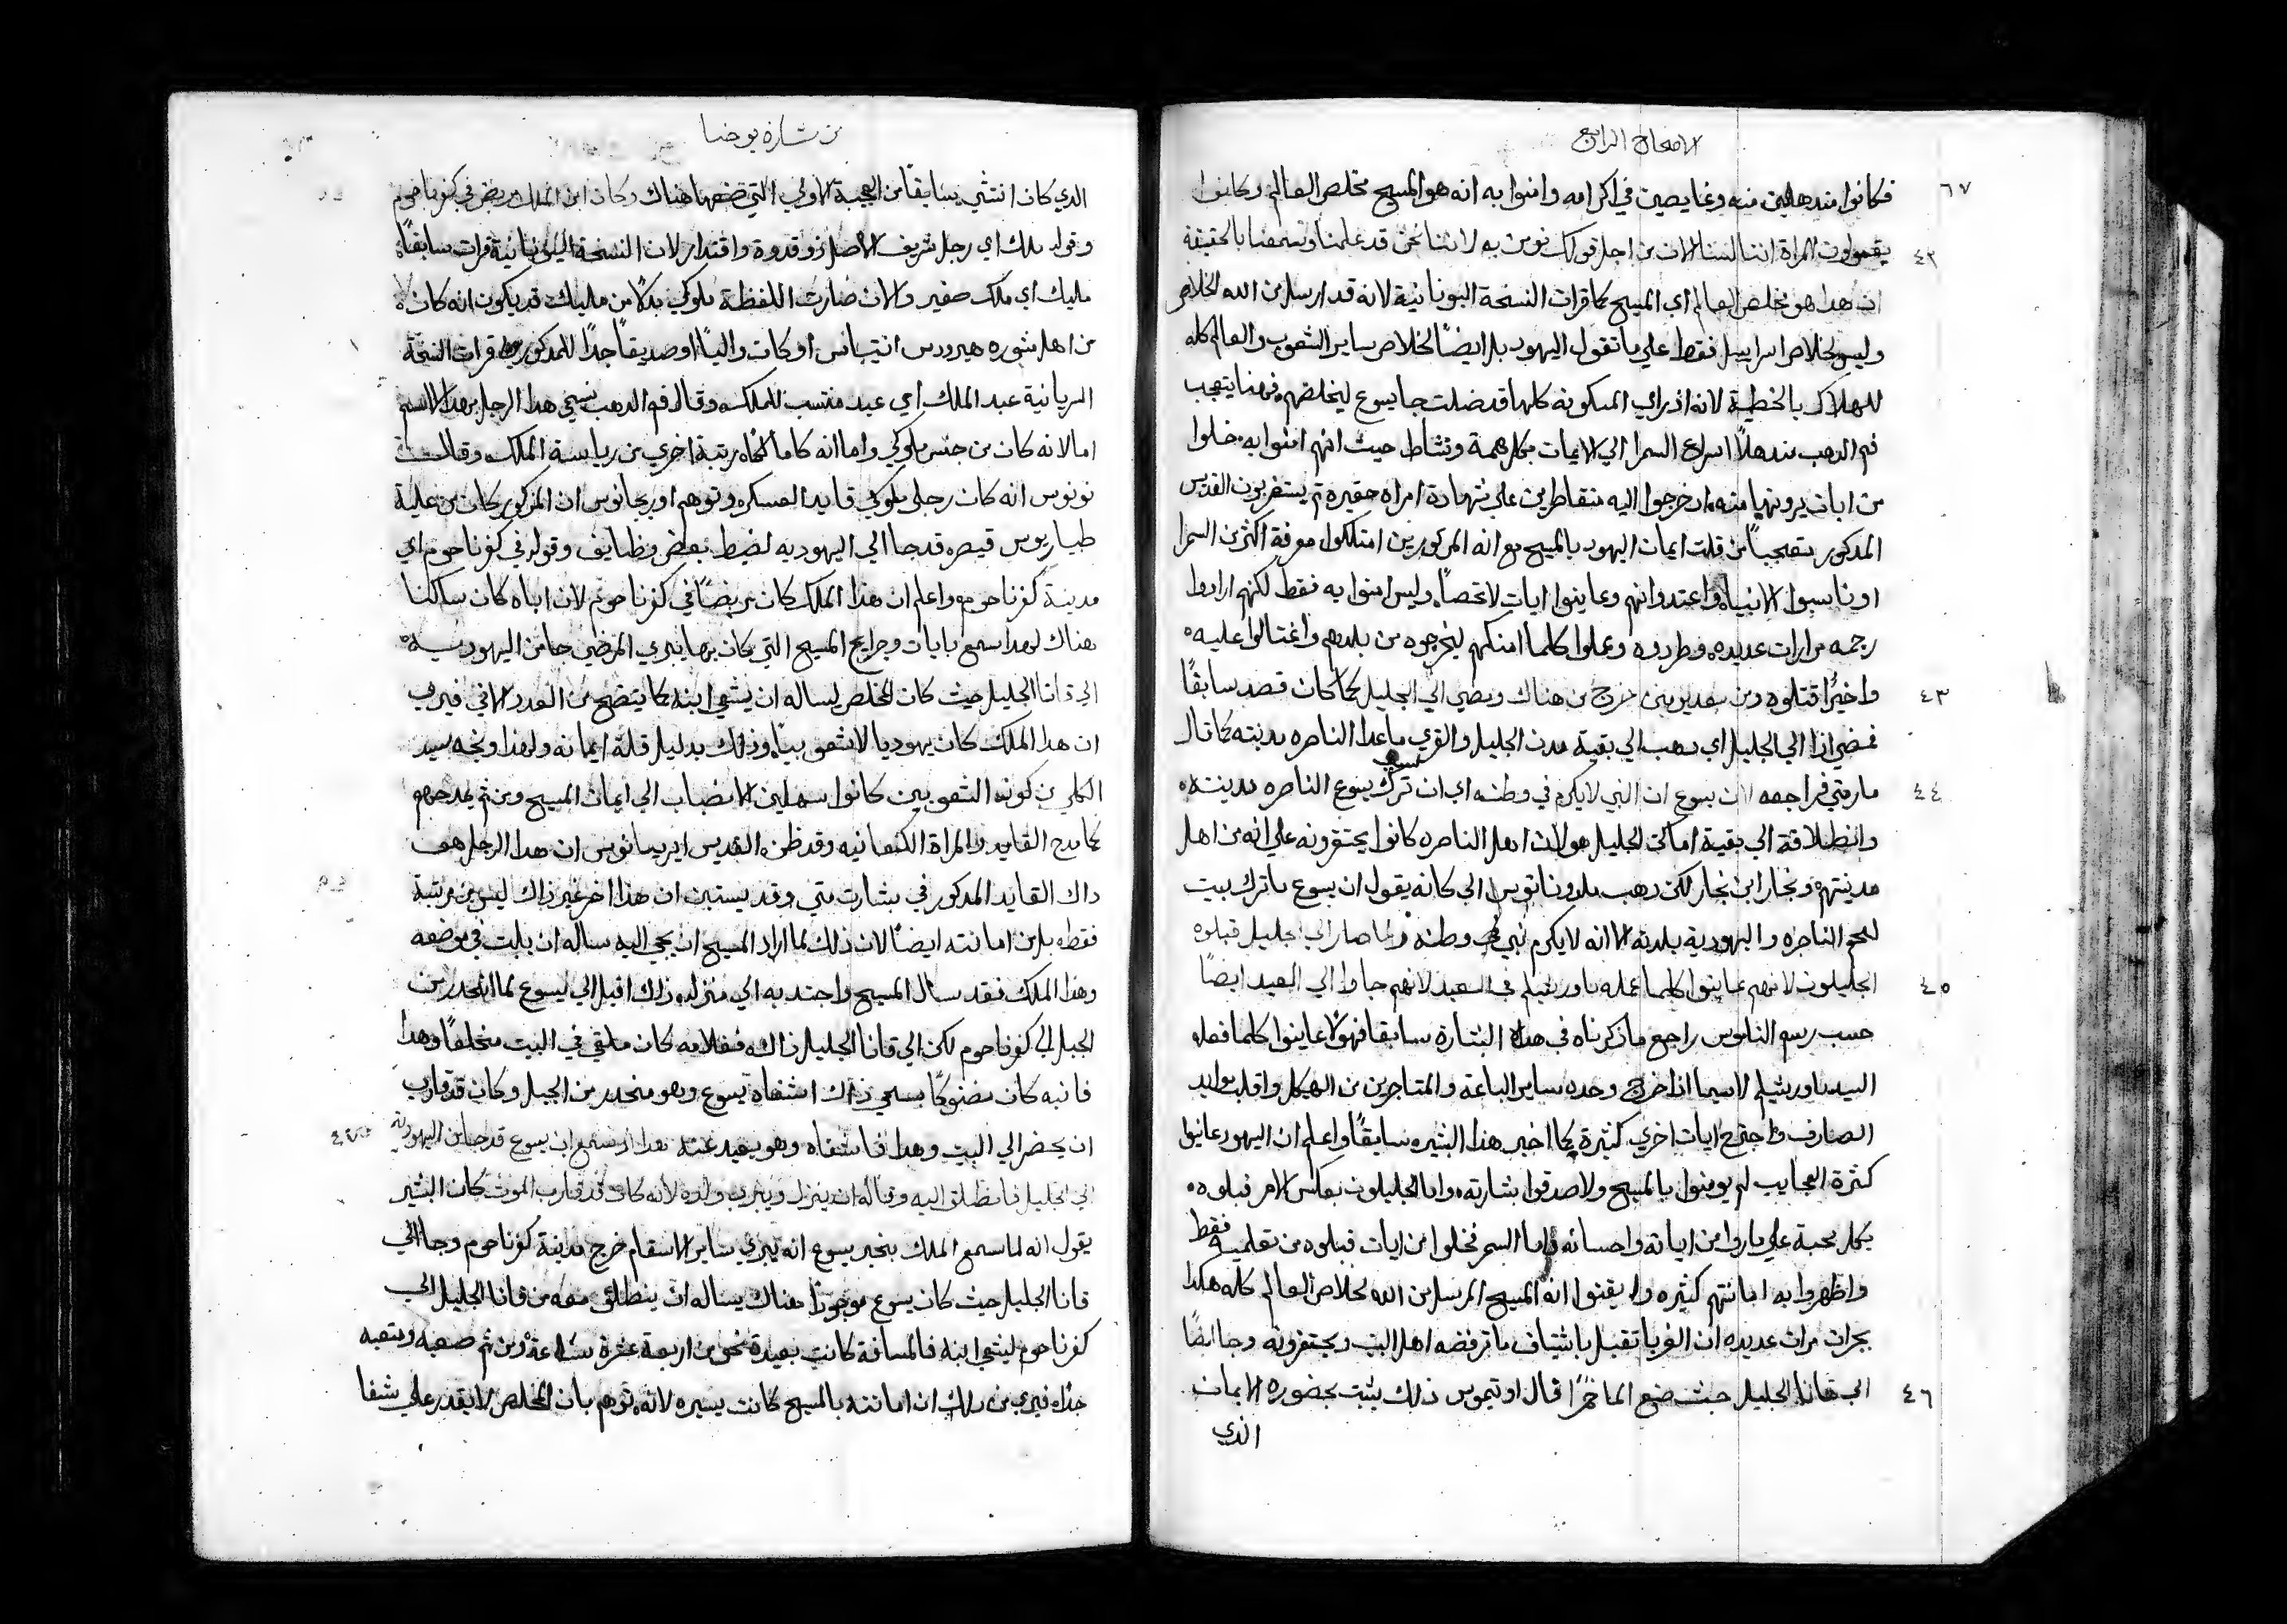 الاصحاح الرابع
٦٧
فكانوا مندهلين منه وغايصين في اكرامه وامنوا به انه هو المسيح مخلص العالم وكانوا
٤٢
يقولون للمراة اننا لسنا الان من اجل قولك نومن به لاننا نحن قد علمنا وسمعنا بالحقيقة
ان هدا هو مخلص العالم اي المسيح كما قرات النسخة اليونانية لانه قد ارسل من الله لخلاص
وليس لخلاص اسراييل فقط علي ما تقول اليهود بل ايضًا لخلاص ساير الشعوب والعالم كله
للهلاك بالخطية لانه اذ راي المسكونه كلها قد ضلت جا يسوع ليخلصهم فهنا يتعجب
فم الدهب مندهلاً اسراع السمرا الي الايمان بكل همة ونشاط حيث انهم امنوا به خلوا
من ايات يرونها منه اد خرجوا اليه متقاطرين علي شهادة امراه حقيره ثم يستغربون القديس
المدكور متعجباً من قلت ايمان اليهود بالمسيح مع انه المدكورين امتلكوا معرفة اكثر من السمرا
اوناسبوا الانبياء واعتدوا انهم وعاينوا ايات لا تحصاً وليس امنوا به فقط لكنهم ارادوا
رجمه مرارات عديده وطردوه وعملوا كلما امنكهم ليخرجوه من بلدهم واغتالوا عليه
٤٣
واخيرًا قتلوه ومن بعد يومين خرج من هناك ومضي الي الجليل كما كان قصد سابقًا
فمضي اذا الي الجليل اي دهب الي بقية مدن الجليل والقري ماعدا الناصره مدينته كما قال
٤٤
مارمتي فراجعه لان يسوع ان النبي لا يكرم في وطنه اي ان سبب ترك يسوع الناصره مدينته
وانطلاقة الي بقية اماكن الجليل هو لان اهل الناصره كانوا يحتقرونه علي انه من اهل
مدينتهم ونجار ابن نجار لكن دهب ملدوناتوس الي كانه يقول ان يسوع ما ترك بيت
لحم الناصره واليهودية بلدته الا انه لا يكرم نبي في وطنه ولما صار الي الجليل قبلوه
٤٥
الجليليون لانهم عاينوا كلما عمله باورشليم في العيد لانهم جاوا الي العيد ايضًا
حسب رسم الناموس راجع ما ذكرناه في هده البشارة سابقا فهولا عاينوا كلما فعله
السيد باورشليم لاسيما اذ اخرج وحده ساير الباعة والمتاجرين من الهيكل واقلب موايد
الصيارف واجترح ايات اخري كثيرة كما اخبر هذا البشيره سابقًا واعلم ان اليهود عاينوا
كثرة العجايب لم يومنوا بالمسيح ولا صدقوا بشارته واما الجليليون بعكس الامر قبلوه
بكل محبة علي ما راوا من اياته واحسانه واما السمر فخلوا من ايات قبلوه من تعلميه فقط
واظهروا به امانتهم كثيره وايقنوا انه المسيح المرسل من الله لخلاص العالم كله هكدا
بجران مرات عديده ان الغربا تقبل باشتياف ما ترفضه اهل البيت ويحتقرونه وجا ايضًا
٤٦
الي قانا الجليل حيث صنع الما خمرًا قال اوتيموس ذلك يثبت بحضوره الايمان
الذي
من بشارة يوحنا
الدي كان انتشي سابقا من العجيبة الاولي التي صنعها هناك وكان ابن الملك مريض في كفرناحوم
وقوله ملك اي رجل شريف الاصل ذو قدوة واقتدار لان النسخة اليونانية قرات سابقًا
مليك اي ملك صغير والان صارت اللفظة ملوكي بدلًا من مليك قد يكون انه كان
من اهل مشوره هيرودس انتيباس او كان والياً او صديقاً جدًا للمدكور قرات النسخة
السريانية عبد الملك اي عبد منتسب للملك وقال فم الدهب نسمي هدا الرجل بهدا الاسم
اما لانه كان من جنس ملوكي واما انه كاما لخاه رتبة اخري من رياسة الملك وقالت
نونوس انه كان رجلي ملوكي قايد العسكره وتوهم اوريجانوس ان المدكور كان من علية
طيباريوس قيصره قد جا الي اليهوديه لضبط بعض وظايف وقوله في كفرناحوم اي
مدينة كفرناحوم واعلم ان هدا الملك كان مريضًا في كفرناحوم لان اباه كان ساكنا
هناك لهدا سمع بايات وجرايح المسيح التي كان بها يبري المرضي جا من اليهودية
الي قانا الجليل حيث كان المخلص ليساله ان يشفي ابنه كما يتضح من العدد الاتي فيري
ان هدا الملك كان يهوديا لا شعوبيًا وذلك بدليل قلة ايمانه ولهذا وبخه سيد
الكلي من كونه الشعوبين كانوا سهلين الانصباب الي ايمان المسيح ومن ثم يمدحهم
كما مدح القايد والمراة الكنعانيه وقد ظن القديس ايريناوس ان هدا الرجل هو
داك القايد المدكور في بشارت متي وقد يستبين ان هدا اخر غير ذاك ليس من مرتبة
فقطه بل من امانته ايضًا لان ذلك لما اراد المسيح ان يجي اليه ساله ان يلبت في موضعه
وهدا الملك فقد سال المسيح واجتدبه الي منزله ذلك اقبل الي يسوع لما انحدر من
الجبل الي كفرناحوم لكن الي قانا الجليل ذاك فغلامه كان ملقي في البيت متخلفًا وهدا
فانبه كان مضنوكًا بسمي ذاك اشفاه يسوع وهو منحدر من الجبل وكان قد قارب
٤٧
ان يحضر الي البيت وهدا فاشفاه وهو بعيد عنه هدا اد سمع ان يسوع قد جا من اليهودية
الي الجليل فانطلق اليه وساله ان ينزل ويبري ولده لانه كان قد قارب الموت كان البشير
يقول انه لما سمع الملك بخبر يسوع انه يبري ساير الاسقام خرج مدينة كفرناحوم وجا الي
قانا الجليل حيث كان يسوع موجودًا هناك يساله ان ينطلق معه من قانا الجليل الي
كفرناحوم ليشفي ابنه فالمسافة كانت بعيدة نحو من اربعة عشرة ساعة ومن ثم صعبه ومتعبه
جدًا فيري من ذلك ان امانته بالمسيح كانت يسيره لانه توهم بان المخلص لا يقدر علي شفا